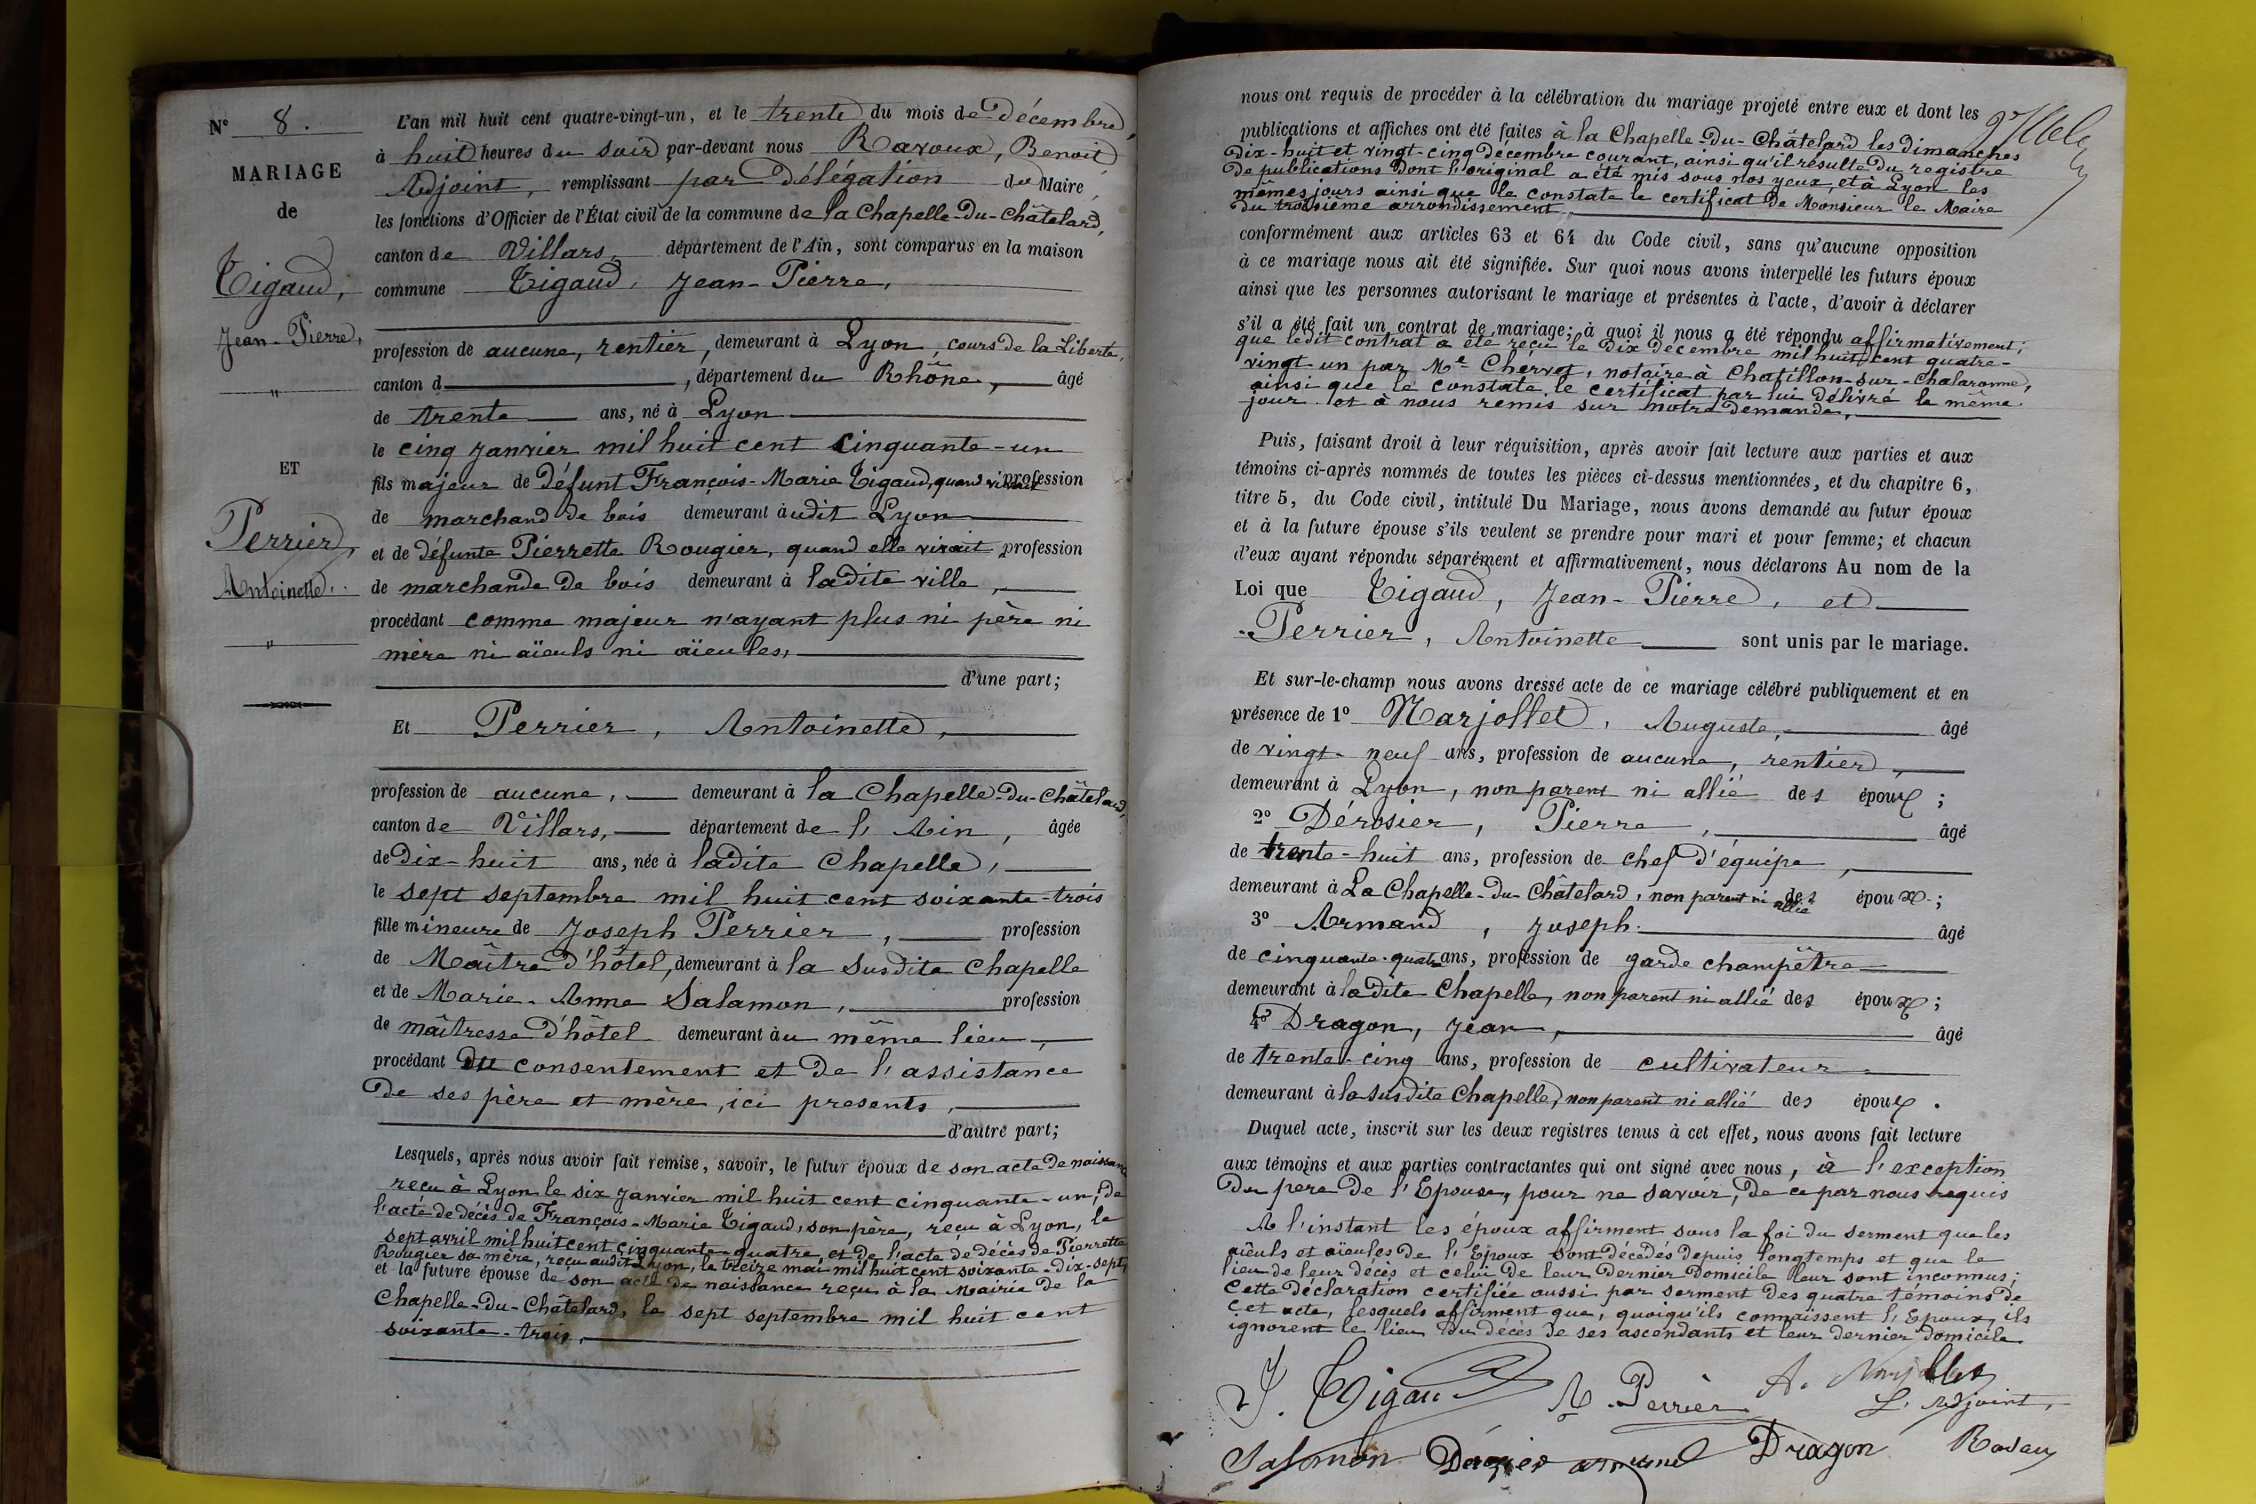 N° 8.
MARIAGE
de
Tigaud,
Jean-Pierre,
"
ET
Perrier,
Antoinette.
"
L'an mil huit cent quatre-vingt-un, et le trente du mois de décembre,
à huit heures du soir par-devant nous Ravoux, Benoit
Adjoint, remplissant par délégation du Maire,
les fonctions d'Officier de l'État civil de la commune de la Chapelle-du-Châtelard,
canton de Villars, département de l'Ain, sont comparus en la maison
commune Tigaud, Jean-Pierre,
profession de aucune, rentier, demeurant à Lyon, cours de la Liberté,
canton d , département du Rhône, âgé
de trente ans, né à Lyon
le cinq janvier mil huit cent cinquante-un
fils majeur de défunt François-Marie Tigaud, quand vivait profession
de marchand de bois demeurant audit Lyon
et de défunte Pierrette Rougier, quand elle vivait, profession
de marchande de bois demeurant à ladite ville,
procédant comme majeur n'ayant plus ni père ni
mère ni aïeuls ni aïeules,
d'une part;
Et Perrier, Antoinette,
profession de aucune, demeurant à la Chapelle-du-Châtelard,
canton de Villars, département de l'Ain, âgée
de dix-huit ans, née à ladite Chapelle,
le sept septembre mil huit cent soixante-trois
fille mineure de Joseph Perrier, profession
de Maître d'hôtel, demeurant à la susdite Chapelle
et de Marie-Anne Salamon, profession
de maîtresse d'hôtel demeurant au même lieu,
procédant du consentement et de l'assistance
de ses père et mère, ici présents,
d'autre part;
Lesquels, après nous avoir fait remise, savoir, le futur époux de son acte de naissance
reçu à Lyon le six janvier mil huit cent cinquante-un, de
l'acte de décès de François-Marie Tigaud, son père, reçu à Lyon, le
sept avril mil huit cent cinquante-quatre, et de l'acte de décès de Pierrette
Rougier sa mère, reçu audit Lyon, le treize mai mil huit cent soixante-dix-sept;
et la future épouse de son acte de naissance reçu à la Mairie de la
Chapelle-du-Châtelard, le sept septembre mil huit cent
soixante-trois,
nous ont requis de procéder à la célébration du mariage projeté entre eux et dont les
publications et affiches ont été faites à la Chapelle-du-Châtelard les dimanches
dix-huit et vingt-cinq décembre courant, ainsi qu'il résulte du registre
de publications dont l'original a été mis sous nos yeux, et à Lyon les
mêmes jours ainsi que le constate le certificat de Monsieur le Maire
du troisième arrondissement,
conformément aux articles 63 et 64 du Code civil, sans qu'aucune opposition
à ce mariage nous ait été signifiée. Sur quoi nous avons interpellé les futurs époux
ainsi que les personnes autorisant le mariage et présentes à l'acte, d'avoir à déclarer
s'il a été fait un contrat de mariage; à quoi il nous a été répondu affirmativement;
que ledit contrat a été reçu le dix décembre mil huit cent quatre-
vingt-un par Me Chervet, notaire à Chatillon-sur-Chalaronne,
ainsi que le constate le certificat par lui délivré le même
jour et à nous remis sur notre demande,
Puis, faisant droit à leur réquisition, après avoir fait lecture aux parties et aux
témoins ci-après nommés de toutes les pièces ci-dessus mentionnées, et du chapitre 6,
titre 5, du Code civil, intitulé Du Mariage, nous avons demandé au futur époux
et à la future épouse s'ils veulent se prendre pour mari et pour femme; et chacun
d'eux ayant répondu séparément et affirmativement, nous déclarons Au nom de la
Loi que Tigaud, Jean-Pierre, et
Perrier, Antoinette sont unis par le mariage.
Et sur-le-champ nous avons dressé acte de ce mariage célébré publiquement et en
présence de 1° Marjollet, Auguste, âgé
de vingt-neuf ans, profession de aucune, rentier,
demeurant à Lyon, non parent ni allié des époux;
2° Dérosier, Pierre, âgé
de trente-huit ans, profession de chef d'équipe,
demeurant à La Chapelle-du-Châtelard, non parent ni allié des époux;
3° Armand, Joseph. âgé
de cinquante-quatre ans, profession de garde champêtre
demeurant à ladite Chapelle, non parent ni allié des époux;
4° Dragon, Jean, âgé
de trente-cinq ans, profession de cultivateur
demeurant à la susdite Chapelle, non parent ni allié des époux.
Duquel acte, inscrit sur les deux registres tenus à cet effet, nous avons fait lecture
aux témoins et aux parties contractantes qui ont signé avec nous, à l'exception
du père de l'Epouse, pour ne savoir, de ce par nous requis
A l'instant les époux affirment sous la foi du serment que les
aïeuls et aïeules de l'Epoux sont décédés depuis longtemps et que le
lieu de leur décès et celui de leur dernier domicile leur sont inconnus;
Cette déclaration certifiée aussi par serment des quatre témoins de
cet acte, lesquels affirment que, quoiqu'ils connaissent l'Epoux, ils
ignorent le lieu du décès de ses ascendants et leur dernier domicile
J. Tigaud A. Perrier A. Marjollet
L'Adjoint,
Salomon Dérosier armand Dragon Ravoux